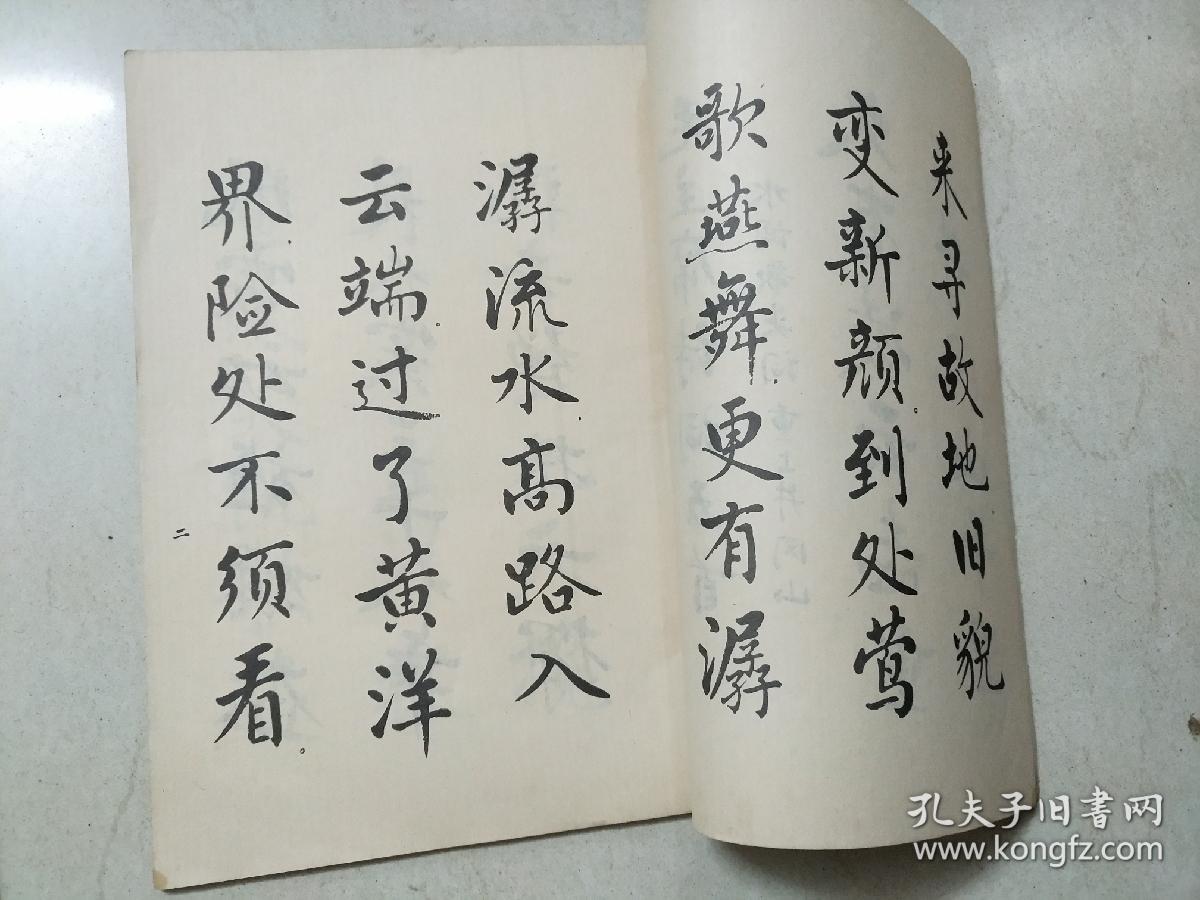 来寻故地旧貌
变新颜。到处莺
歌燕舞,更有潺
潺流水,高路入
云端。过了黄洋
界,险处不须看。
二
孔夫子旧书网
www.kongfz.com